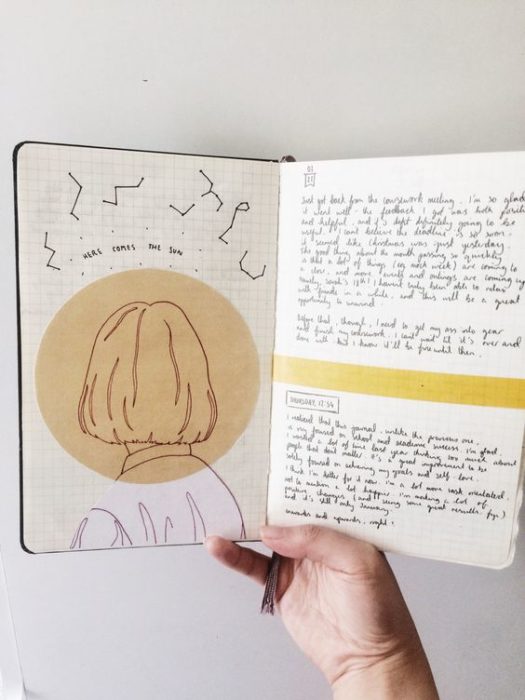 HERE COMES THE SUN
01
22
Just got back from the coursework meeting. I'm so glad
it went well - the feedback I got was both positive
and helpful, and it's definitely going to be
useful. I can't believe the deadline is so soon.
it seemed like christmas was just yesterday.
the good thing about the month passing so quickly
is that a lot of things (ocr mock week) are coming to
a close, and more events and outings are coming up
namely, sarah's 18th! I haven't truly been able to relax
with friends in a while, and this will be a great
opportunity to unwind.
before that, though, I need to get my ass into gear
and finish my coursework. I can't wait til it's over and
done with but I know it'll be fine until then.
THURSDAY, 17:54
I realised that this journal, unlike the previous one,
is v. focused on school and academic success. I'm glad.
I wasted a lot of time last year thinking too much about
people that don't matter. it's a good improvement to be
solely focused on achieving my goals and self-love.
I think I'm better for it now. I'm a lot more task orientated,
not to mention a lot happier. I'm making a lot of
positive changes (and seeing some great results, fyi)
and it's still only January.
onwards and upwards, right?